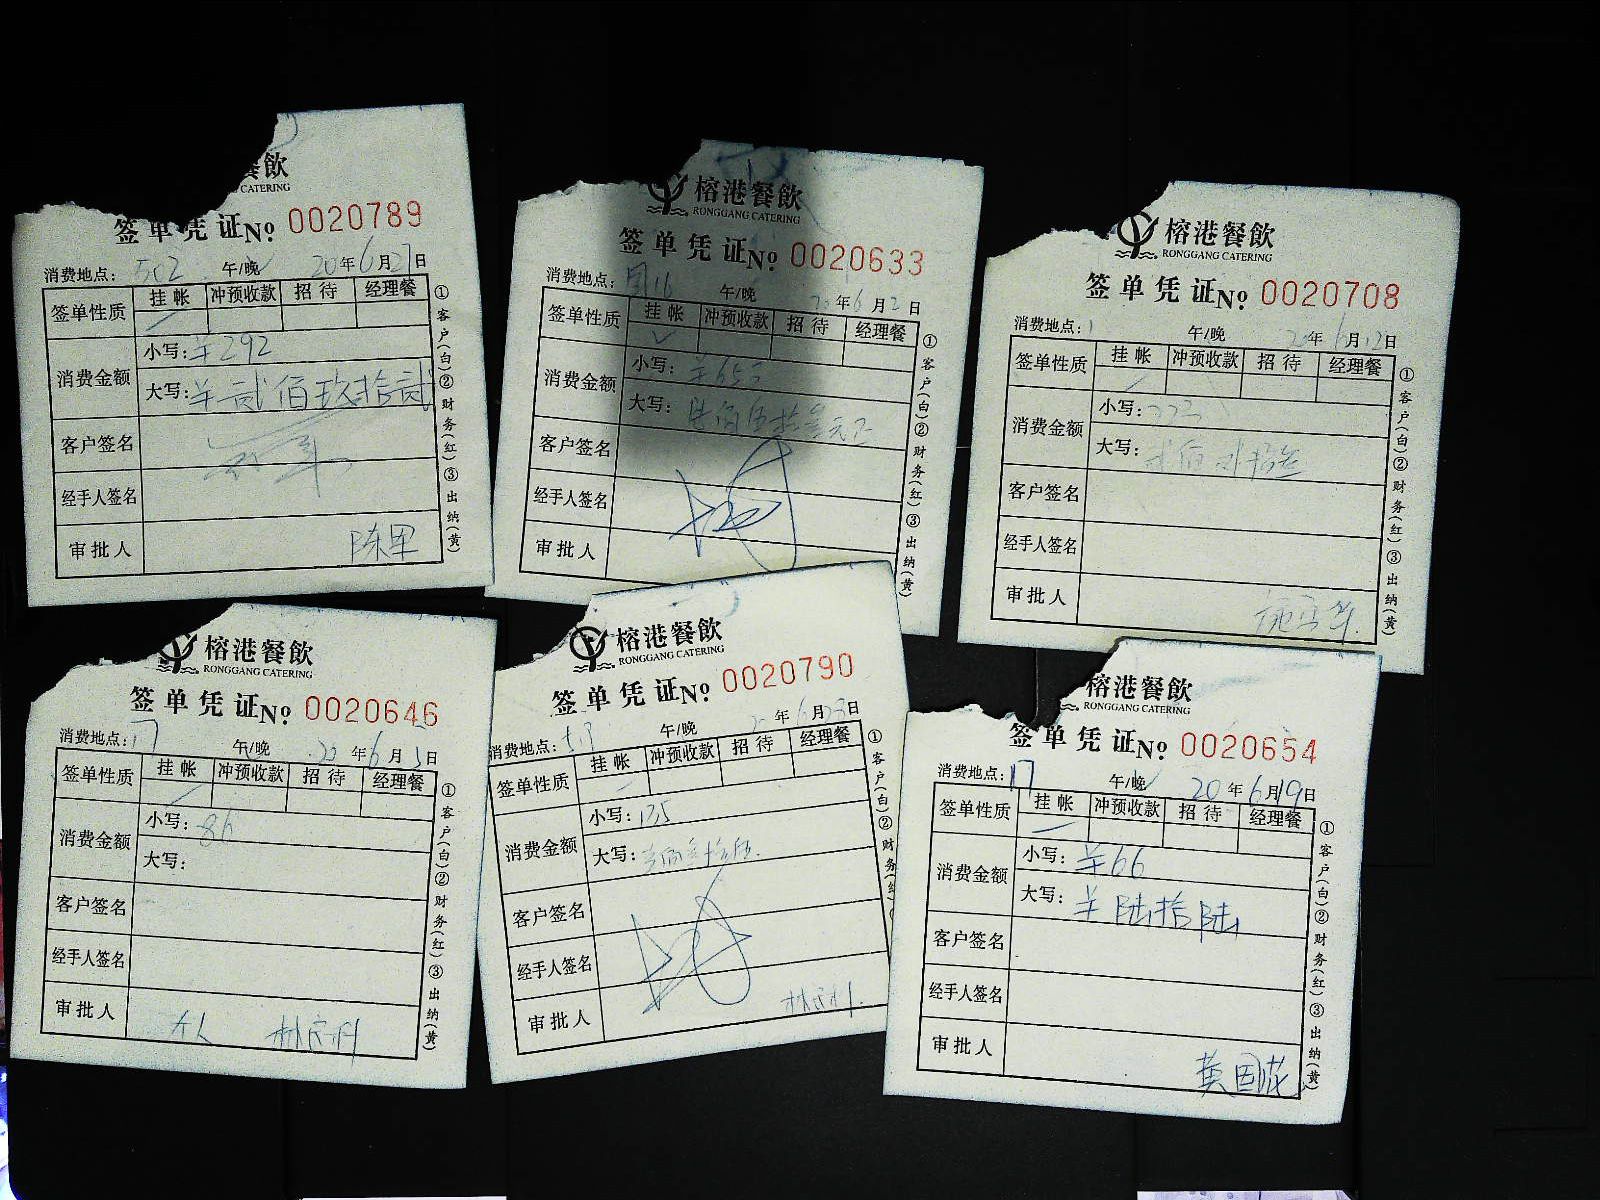 餐飲
CATERING
签单凭证No. 0020789
消费地点: 502 午/晚 20年6月27日
签单性质 挂帐 冲预收款 招待 经理餐
消费金额 小写: ¥292
大写: ¥贰佰玖拾贰
客户签名
经手人签名
审批人
①客户(白)②财务(红)③出纳(黄)
榕港餐飲
RONGGANG CATERING
签单凭证No. 0020633
消费地点: 午/晚 20年6月2日
签单性质 挂帐 冲预收款 招待 经理餐
消费金额 小写: ¥653
大写: 陆佰伍拾叁元正
客户签名
经手人签名
审批人
①客户(白)②财务(红)③出纳(黄)
榕港餐飲
RONGGANG CATERING
签单凭证No. 0020708
消费地点: 午/晚 20年6月12日
签单性质 挂帐 冲预收款 招待 经理餐
消费金额 小写:
大写:
客户签名
经手人签名
审批人
①客户(白)②财务(红)③出纳(黄)
榕港餐飲
RONGGANG CATERING
签单凭证No. 0020646
消费地点: 午/晚 年6月5日
签单性质 挂帐 冲预收款 招待 经理餐
消费金额 小写: 86
大写:
客户签名
经手人签名
审批人
①客户(白)②财务(红)③出纳(黄)
榕港餐飲
RONGGANG CATERING
签单凭证No. 0020790
消费地点: 午/晚 年6月23日
签单性质 挂帐 冲预收款 招待 经理餐
消费金额 小写: 135
大写:
客户签名
经手人签名
审批人
①客户(白)②财务(红)
榕港餐飲
RONGGANG CATERING
签单凭证No. 0020654
消费地点: 午/晚 20年6月19日
签单性质 挂帐 冲预收款 招待 经理餐
消费金额 小写: ¥66
大写: ¥陆拾陆
客户签名
经手人签名
审批人 黄国花
①客户(白)②财务(红)③出纳(黄)